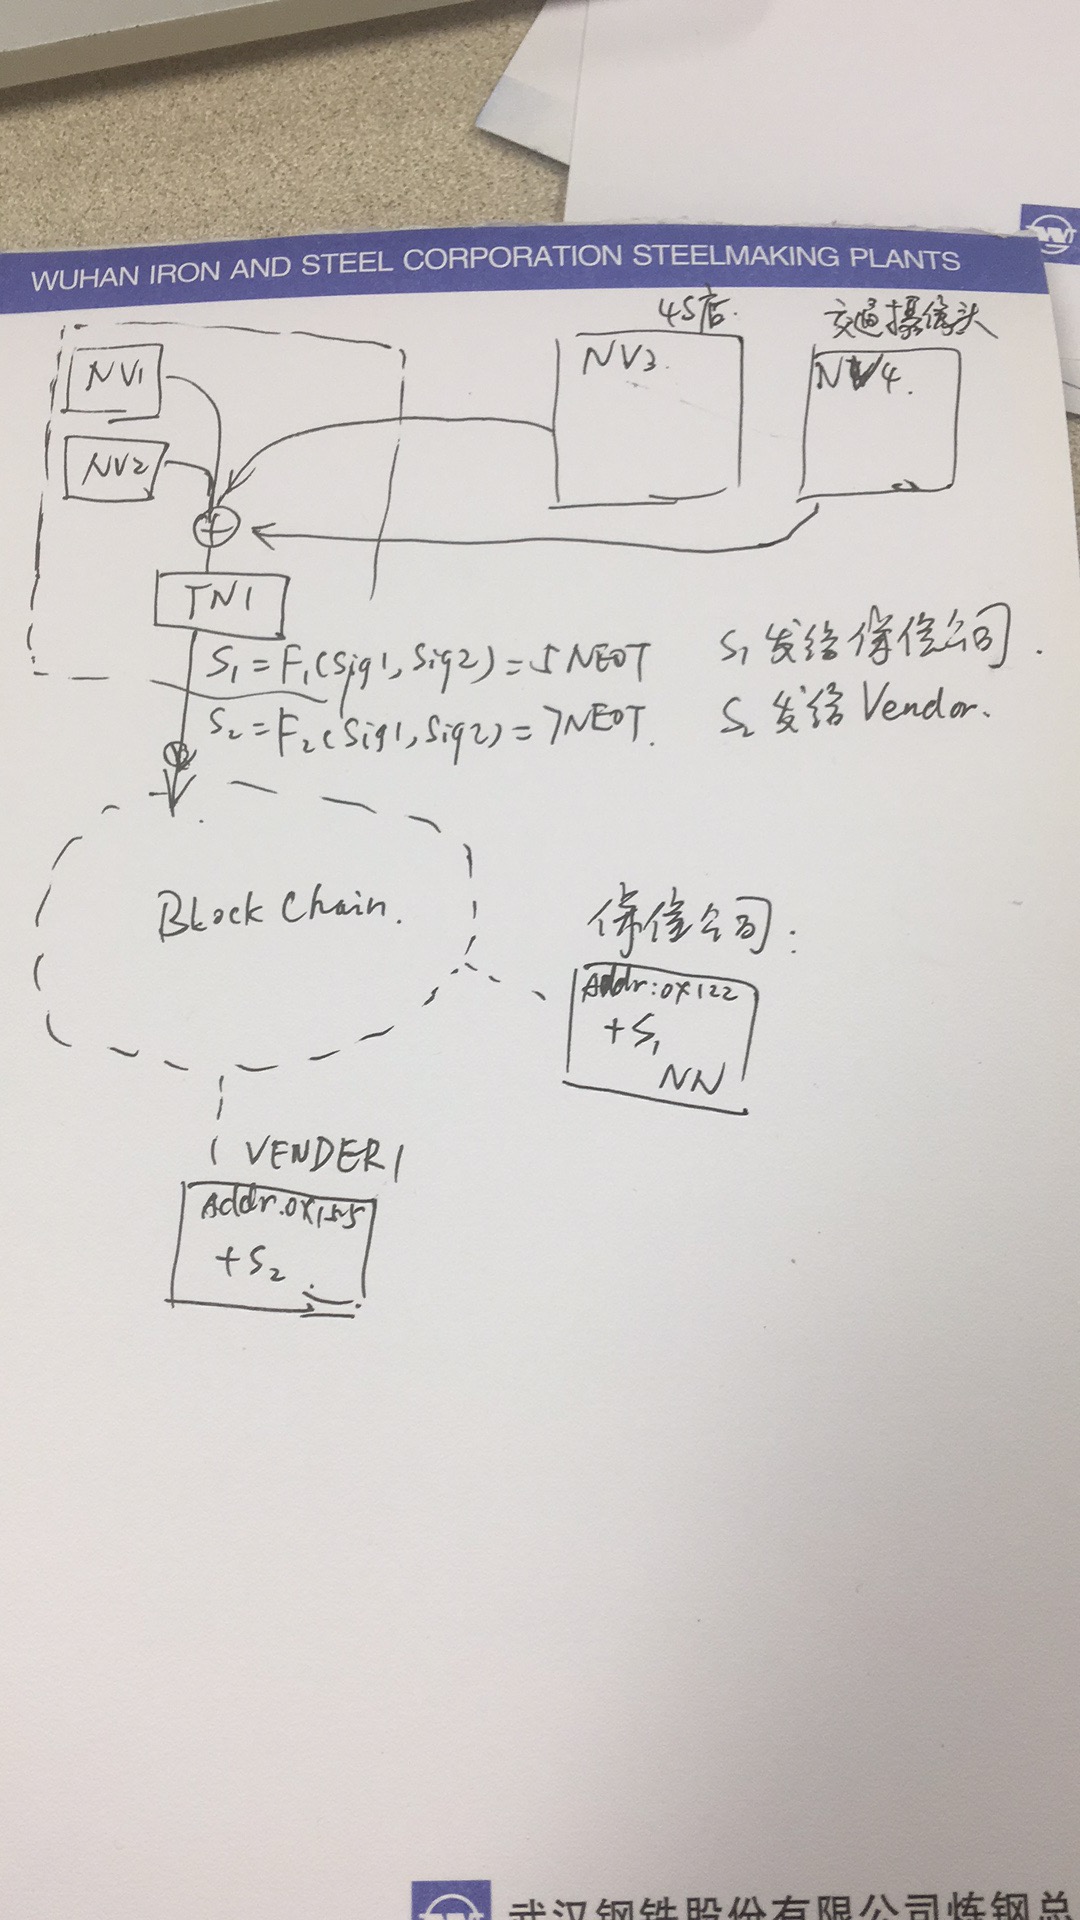 WUHAN IRON AND STEEL CORPORATION STEELMAKING PLANTS
4S店.
交通摄像头
NV1
NV3.
NV4.
NV2
TN1
S₁=F₁(Sig1,Sig2)=5NEOT
S₁发给保险公司.
S₂=F₂(Sig1,Sig2)=7NEOT.
S₂发给Vendor.
Block Chain.
保险公司:
Addr:0X122
+S₁
NN
VENDER1
Addr.0X155
+S₂
武汉钢铁股份有限公司炼钢总